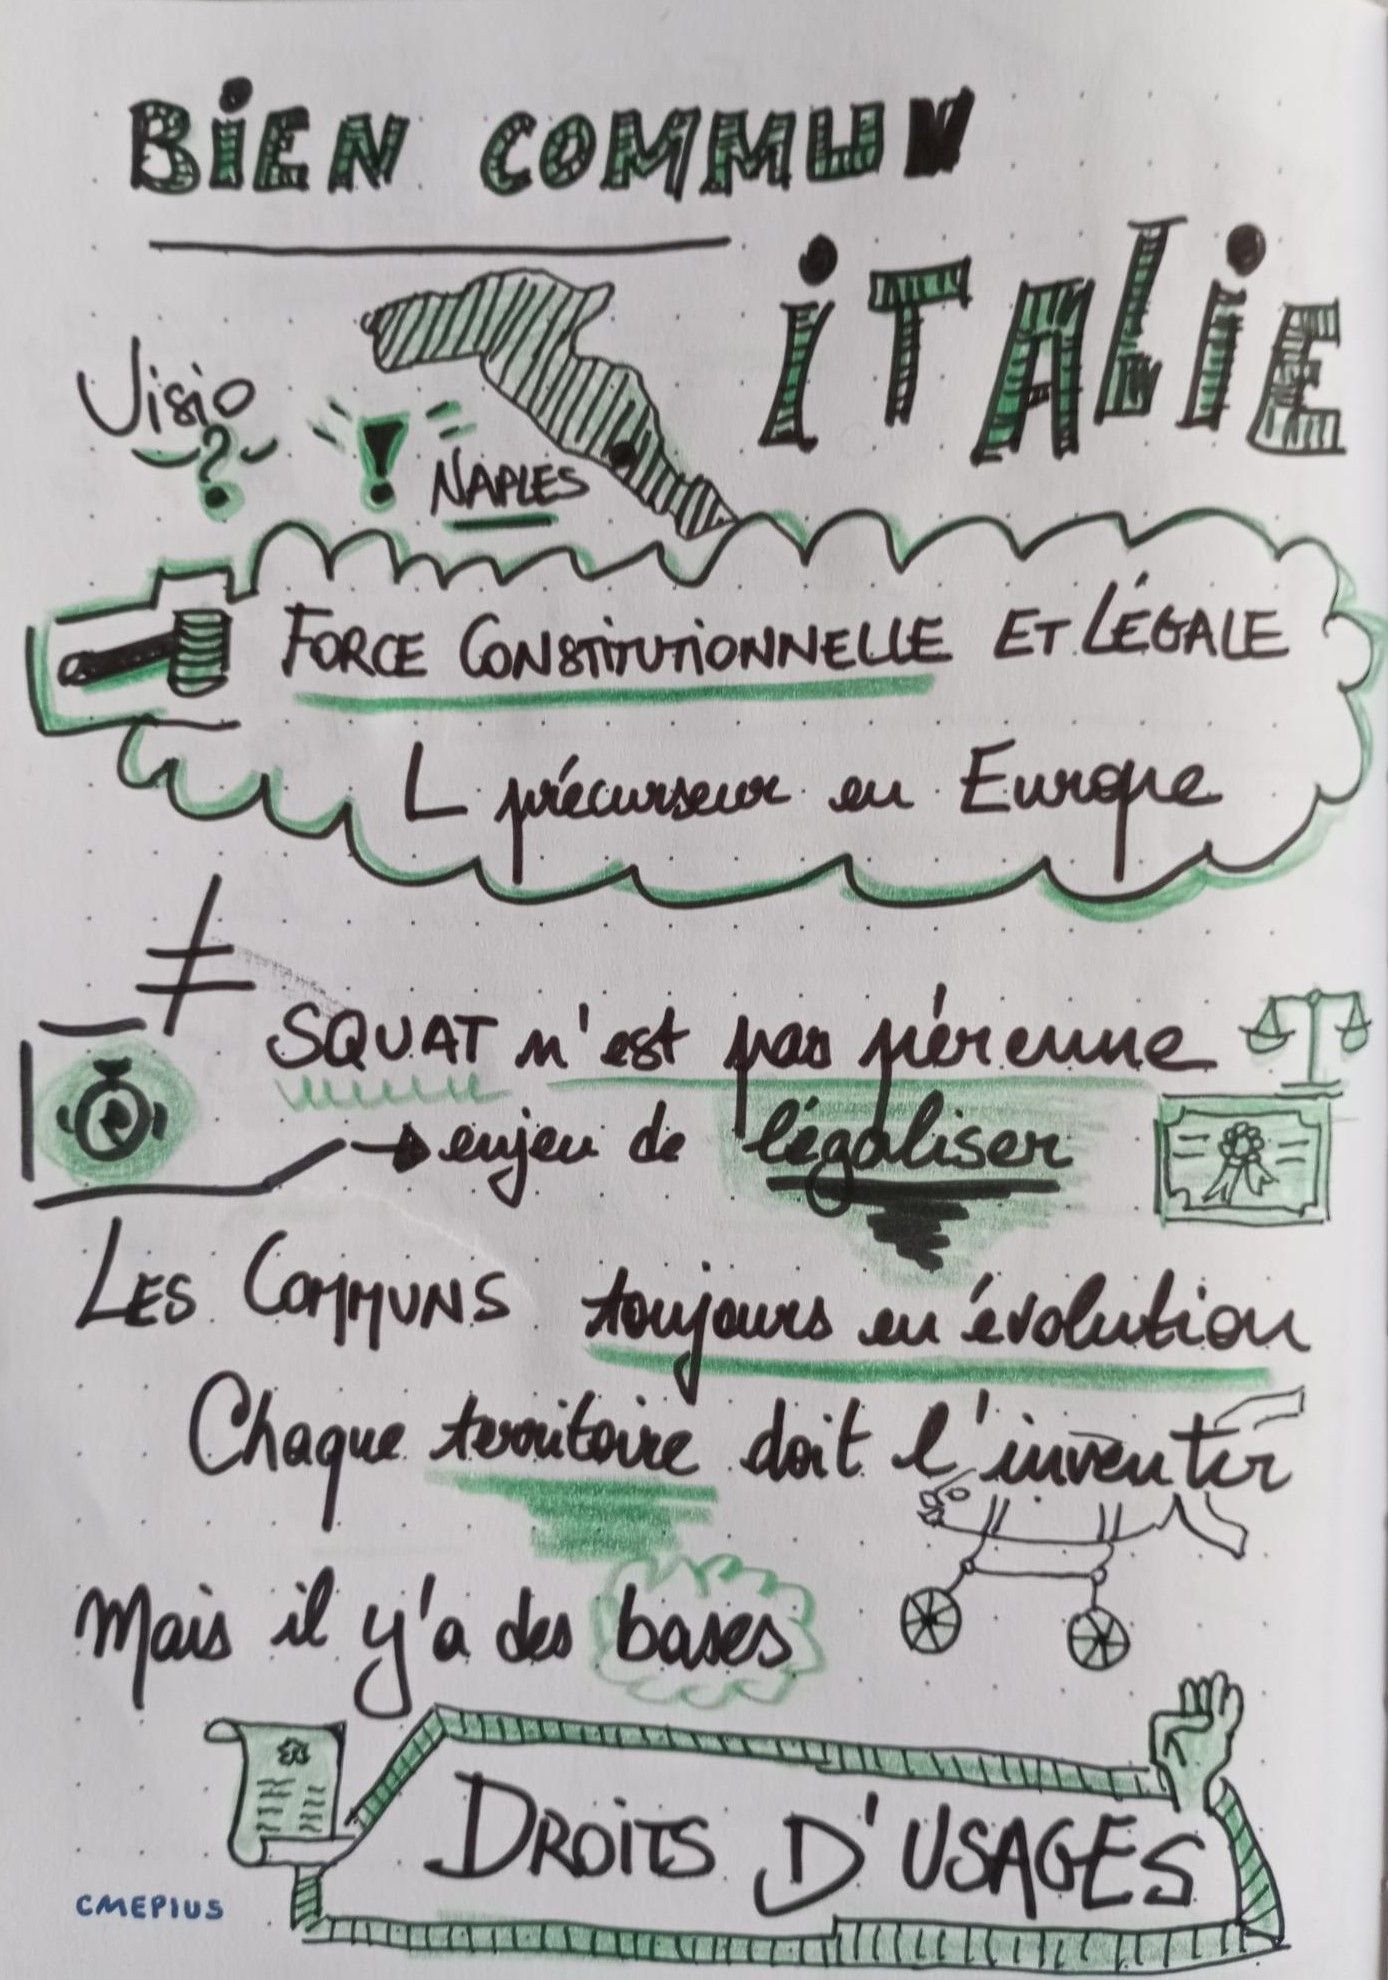 BIEN COMMUN
ITALIE
Visio
?
!
NAPLES
FORCE CONSTITUTIONNELLE ET LÉGALE
L précurseur en Europe
≠
SQUAT n'est pas pérenne
→ enjeu de légaliser
LES COMMUNS toujours en évolution
Chaque territoire doit l'inventer
Mais il y'a des bases
DROITS D'USAGES
CMEPIUS